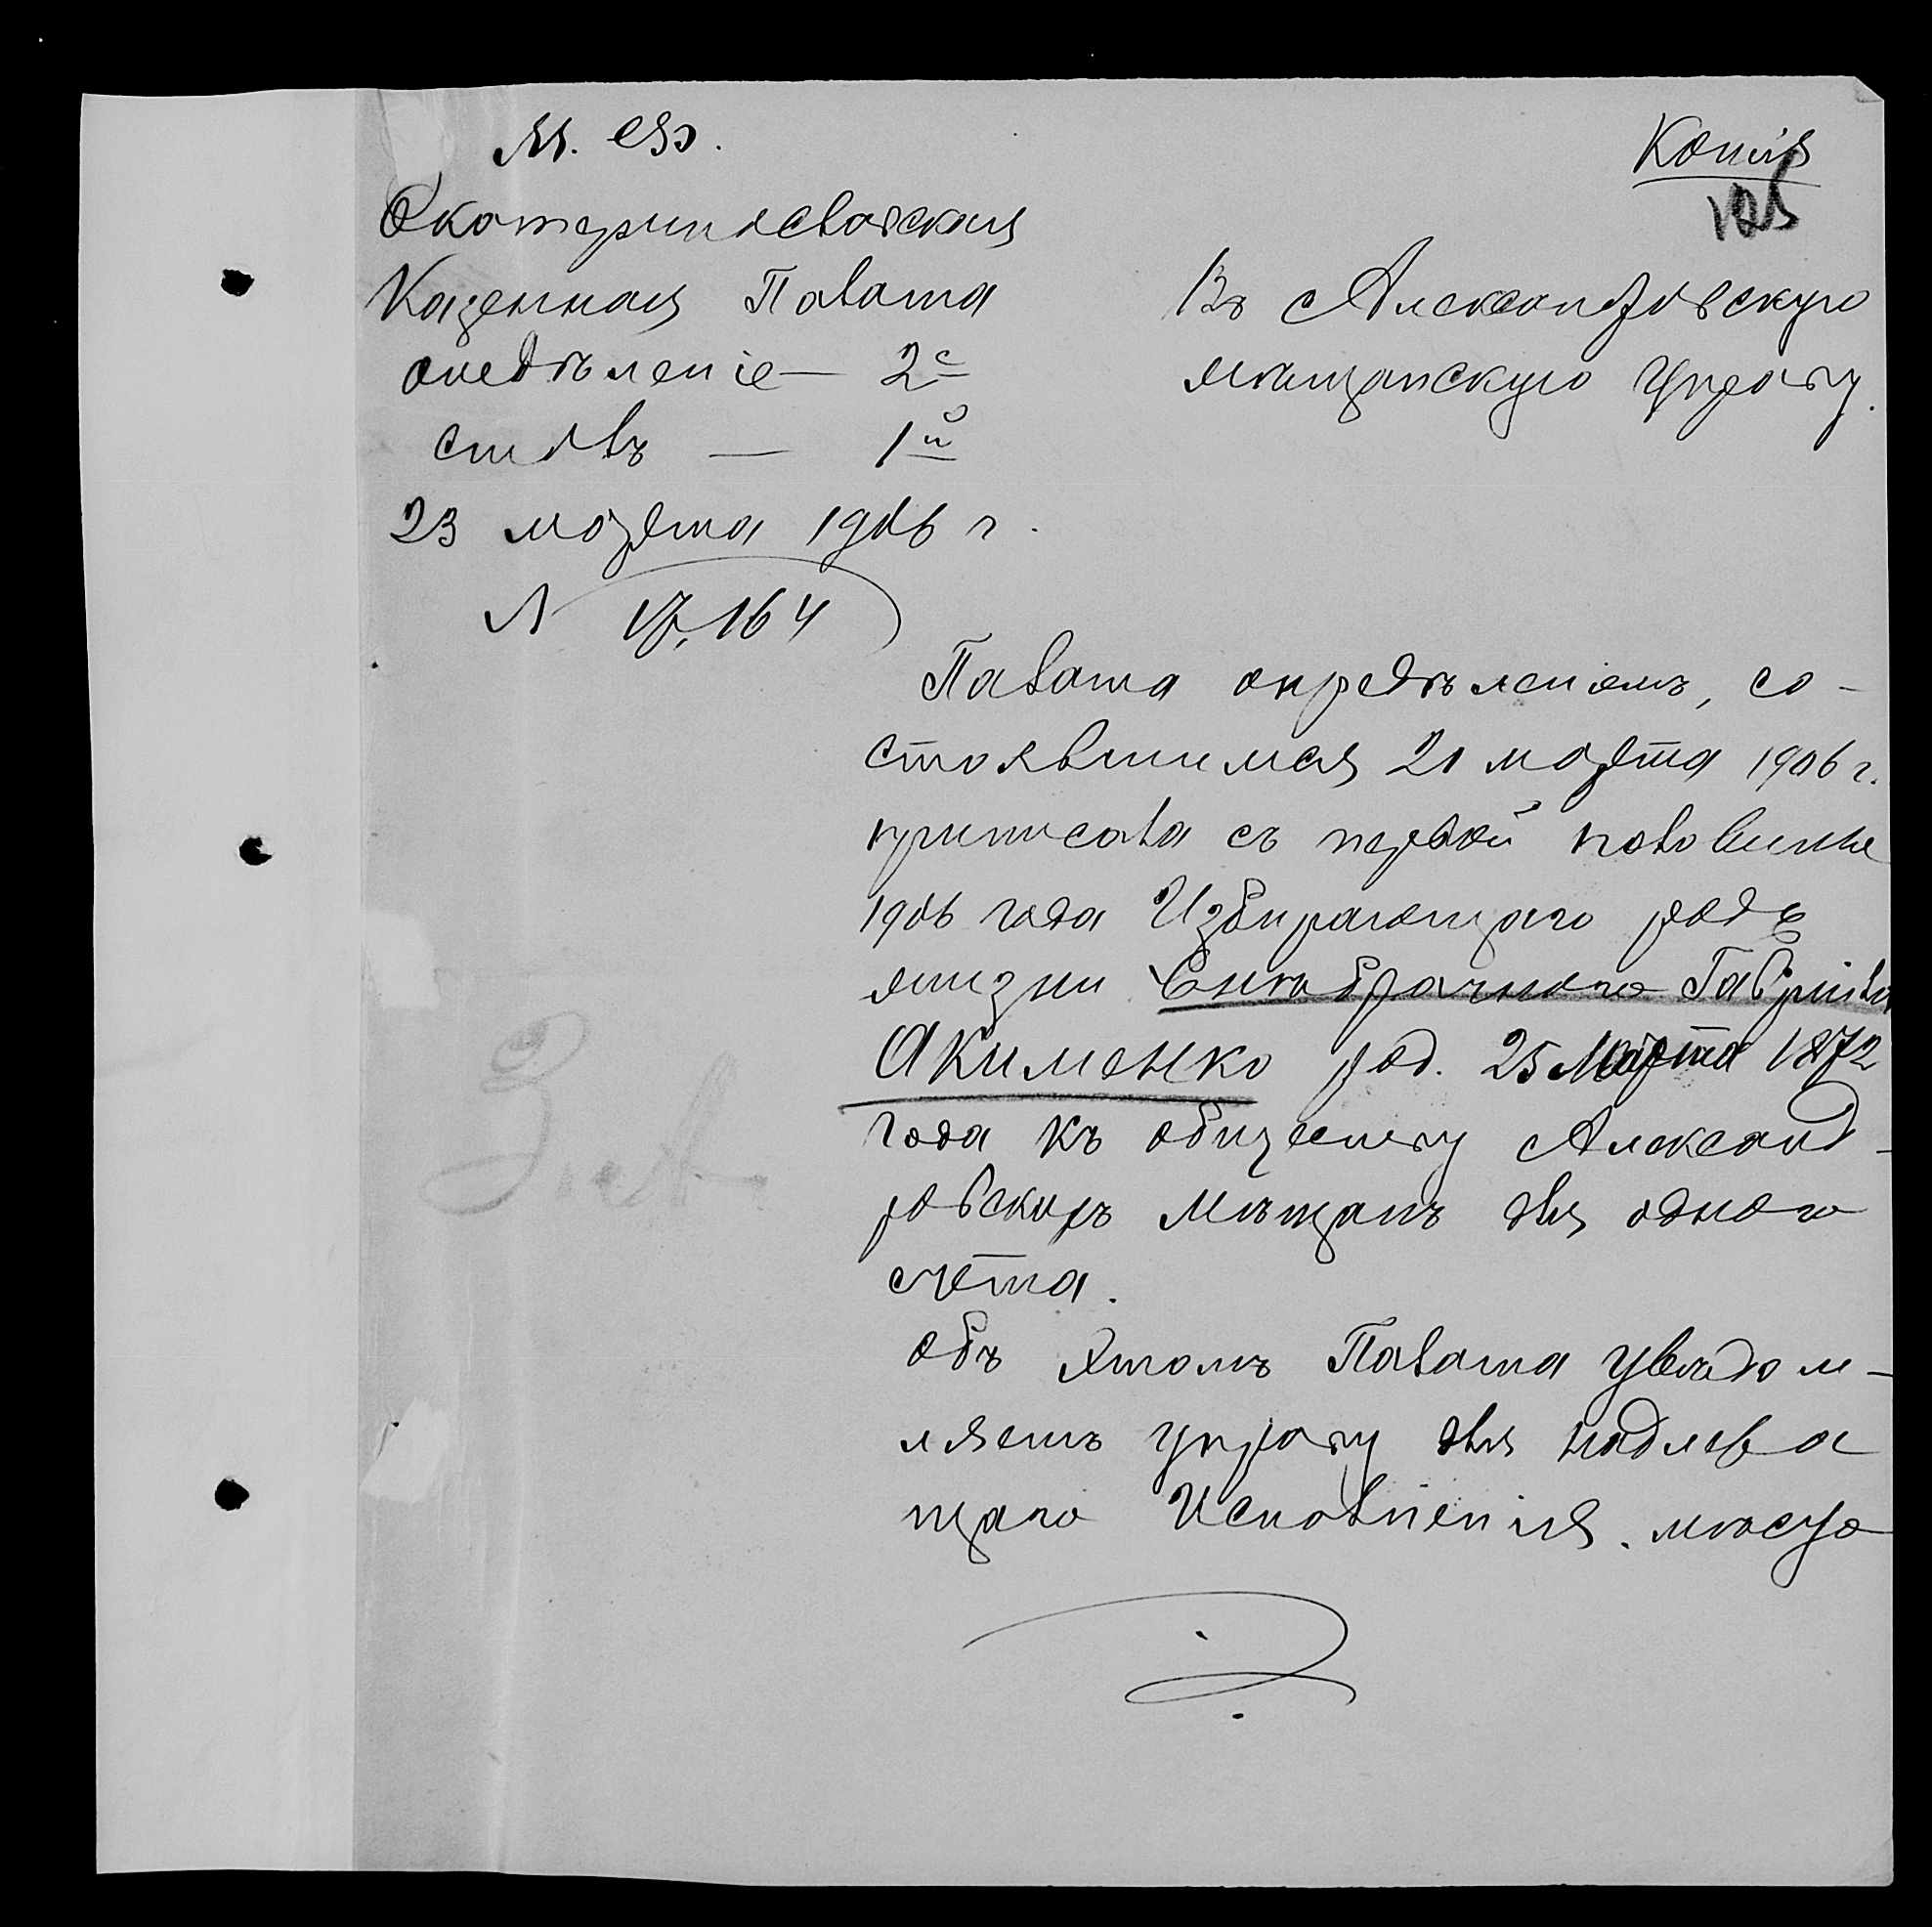 М. вд.
Копія
105
Екатеринославская
Казенная Палата
отдѣленіе — 2е
столъ — 1й
23 марта 1906 г.
№ 17,164
Въ Александровскую
мѣщанскую Управу.
Палата опредѣленіемъ, со-
стоявшимся 21 марта 1906 г.
приписала съ первой половины
1906 года Избирающаго родъ
жизни Внѣбрачнаго Гавріила
Акименко род. 25 Марта 1872
года къ обществу Александ-
ровскихъ Мѣщанъ для одного
счета.
Объ этомъ Палата увѣдом-
ляетъ управу для надлежа
щаго Исполненія.